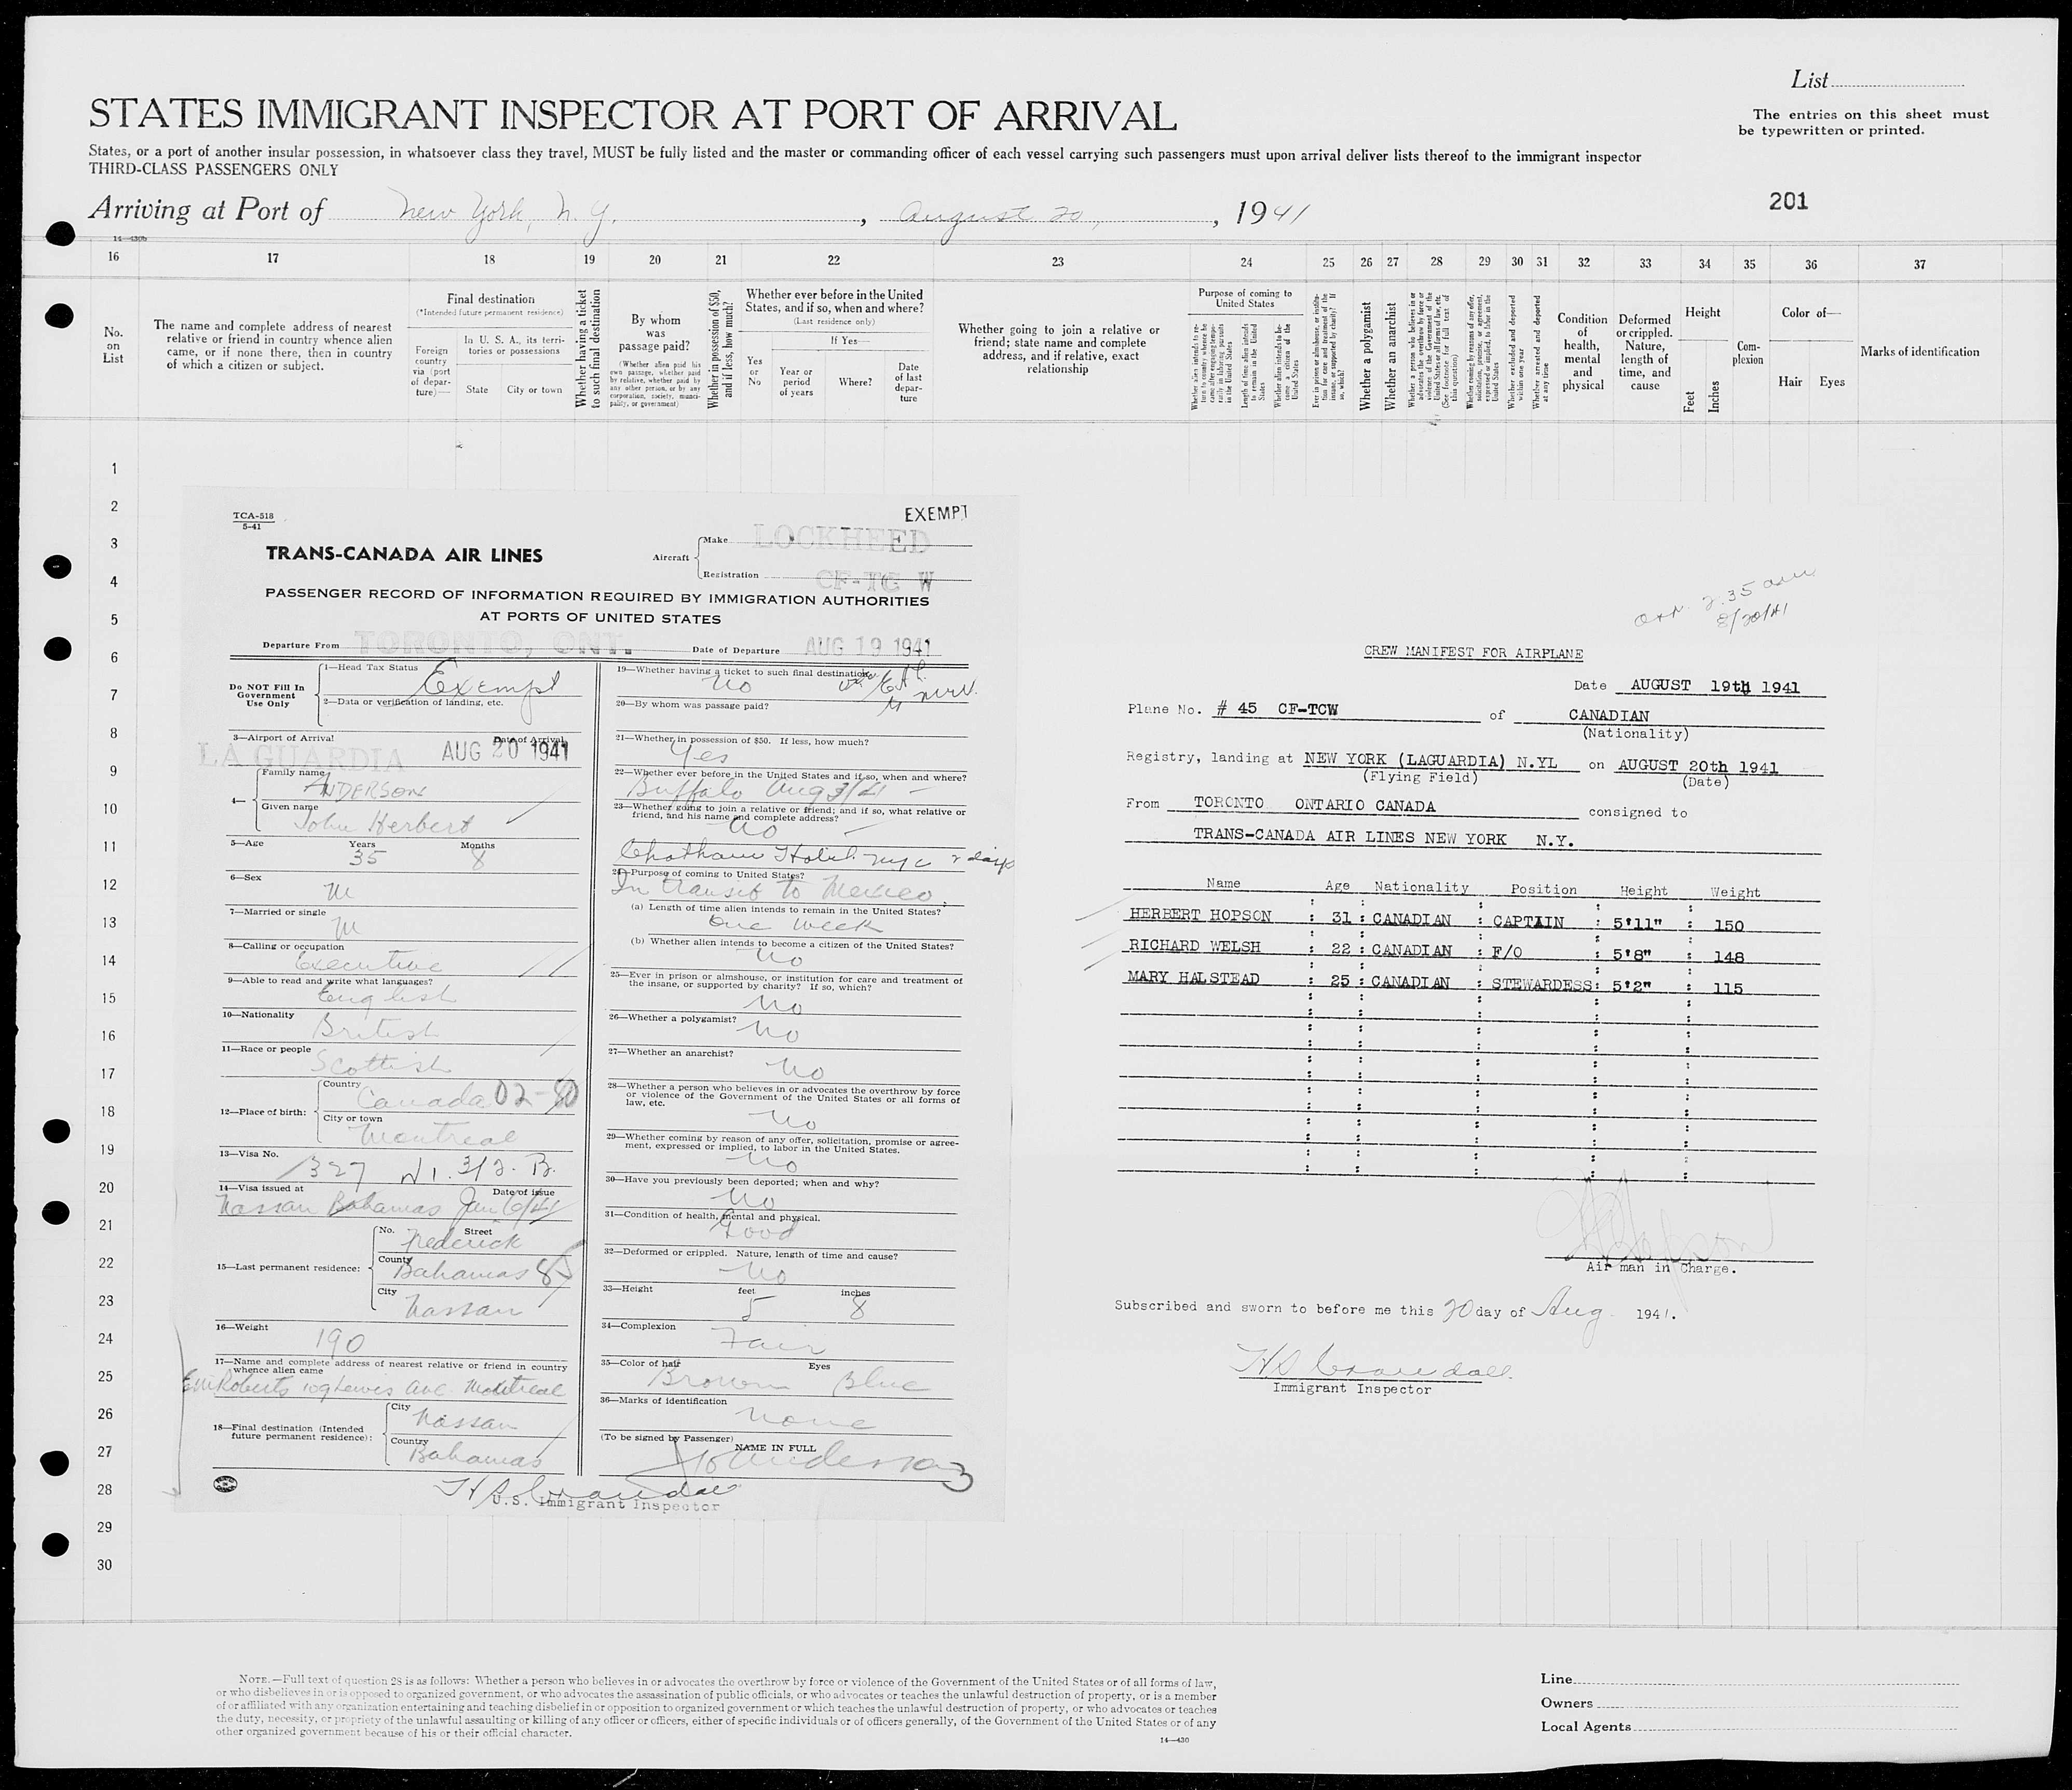 List
STATES IMMIGRANT INSPECTOR AT PORT OF ARRIVAL
The entries on this sheet must
be typewritten or printed.
States, or a port of another insular possession, in whatsoever class they travel, MUST be fully listed and the master or commanding officer of each vessel carrying such passengers must upon arrival deliver lists thereof to the immigrant inspector
THIRD-CLASS PASSENGERS ONLY
Arriving at Port of New York, N.Y. , August 20, , 1941
201
14—430b
16 17 18 19 20 21 22 23 24 25 26 27 28 29 30 31 32 33 34 35 36 37
No. on List
The name and complete address of nearest relative or friend in country whence alien came, or if none there, then in country of which a citizen or subject.
Final destination
(*Intended future permanent residence)
Foreign country via (port of departure)—
In U. S. A., its territories or possessions
State City or town
Whether having a ticket to such final destination
By whom was passage paid?
(Whether alien paid his own passage, whether paid by relative, whether paid by any other person, or by any corporation, society, municipality, or government)
Whether in possession of $50, and if less, how much?
Whether ever before in the United States, and if so, when and where?
(Last residence only)
Yes or No
If Yes—
Year or period of years
Where?
Date of last departure
Whether going to join a relative or friend; state name and complete address, and if relative, exact relationship
Purpose of coming to United States
Length of time alien intends to remain in the United States
Whether alien intends to become a citizen of the United States
Whether a polygamist
Whether an anarchist
Whether excluded and deported within one year
Whether arrested and deported at any time
Condition of health, mental and physical
Deformed or crippled. Nature, length of time, and cause
Height
Feet Inches
Complexion
Color of—
Hair Eyes
Marks of identification
1
2
3
4
5
6
7
8
9
10
11
12
13
14
15
16
17
18
19
20
21
22
23
24
25
26
27
28
29
30
TCA-518
5-41
EXEMPT
TRANS-CANADA AIR LINES
Aircraft Make LOCKHEED
Registration CF-TC W
PASSENGER RECORD OF INFORMATION REQUIRED BY IMMIGRATION AUTHORITIES
AT PORTS OF UNITED STATES
Departure From TORONTO, ONT. Date of Departure AUG 19 1941
Do NOT Fill In
Government
Use Only
1—Head Tax Status Exempt
2—Data or verification of landing, etc.
3—Airport of Arrival Date of Arrival
LA GUARDIA AUG 20 1941
4— Family name ANDERSON
Given name John Herbert
5—Age Years 35 Months 8
6—Sex M
7—Married or single M
8—Calling or occupation Executive
9—Able to read and write what languages? English
10—Nationality British
11—Race or people Scottish
12—Place of birth: Country Canada 02-80
City or town Montreal
13—Visa No. 1327
14—Visa issued at Date of issue
Nassau Bahamas Jun 6/41
15—Last permanent residence: No. Street Frederick
County Bahamas 85
City Nassau
16—Weight 190
17—Name and complete address of nearest relative or friend in country
whence alien came
Roberts 109 Lewis Ave Montreal
18—Final destination (Intended
future permanent residence):
City Nassau
Country Bahamas
19—Whether having a ticket to such final destination No
20—By whom was passage paid?
21—Whether in possession of $50. If less, how much? Yes
22—Whether ever before in the United States and if so, when and where?
Buffalo Aug 3/41
23—Whether going to join a relative or friend; and if so, what relative or
friend, and his name and complete address? No
Chatham Hotel NYC 2 days
24—Purpose of coming to United States?
In transit to Mexico
(a) Length of time alien intends to remain in the United States?
One week
(b) Whether alien intends to become a citizen of the United States?
No
25—Ever in prison or almshouse, or institution for care and treatment of
the insane, or supported by charity? If so, which?
No
26—Whether a polygamist? No
27—Whether an anarchist? No
28—Whether a person who believes in or advocates the overthrow by force
or violence of the Government of the United States or all forms of
law, etc.
No
29—Whether coming by reason of any offer, solicitation, promise or agree-
ment, expressed or implied, to labor in the United States.
No
30—Have you previously been deported; when and why?
No
31—Condition of health, mental and physical.
Good
32—Deformed or crippled. Nature, length of time and cause?
No
33—Height feet 5 inches 8
34—Complexion Fair
35—Color of hair Brown Eyes Blue
36—Marks of identification
None
(To be signed by Passenger) NAME IN FULL
JH Anderson
3
HS Crandall
U.S. Immigrant Inspector
arr. 2.35 am
8/20/41
CREW MANIFEST FOR AIRPLANE
Date AUGUST 19th 1941
Plane No. # 45 CF-TCW of CANADIAN
(Nationality)
Registry, landing at NEW YORK (LAGUARDIA) N.YL on AUGUST 20th 1941
(Flying Field) (Date)
From TORONTO ONTARIO CANADA consigned to
TRANS-CANADA AIR LINES NEW YORK N.Y.
Name Age Nationality Position Height Weight
HERBERT HOPSON : 31 : CANADIAN : CAPTAIN : 5'11" : 150
RICHARD WELSH : 22 : CANADIAN : F/O : 5'8" : 148
MARY HALSTEAD : 25 : CANADIAN : STEWARDESS: 5'2" : 115
H Hopson
Air man in Charge.
Subscribed and sworn to before me this 20 day of Aug. 1941.
HS Crandall
Immigrant Inspector
NOTE.—Full text of question 28 is as follows: Whether a person who believes in or advocates the overthrow by force or violence of the Government of the United States or of all forms of law,
or who disbelieves in or is opposed to organized government, or who advocates the assassination of public officials, or who advocates or teaches the unlawful destruction of property, or is a member
of or affiliated with any organization entertaining and teaching disbelief in or opposition to organized government or which teaches the unlawful destruction of property, or who advocates or teaches
the duty, necessity, or propriety of the unlawful assaulting or killing of any officer or officers, either of specific individuals or of officers generally, of the Government of the United States or of any
other organized government because of his or their official character.
14—430
Line
Owners
Local Agents